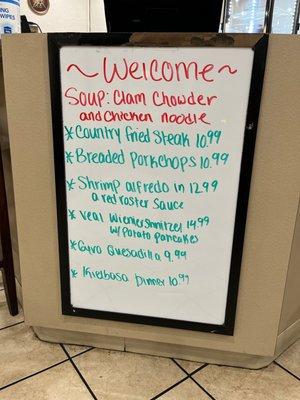 ING
WIPES
~Welcome~
Soup: Clam Chowder
and Chicken noodle
*Country Fried Steak 10.99
*Breaded Porkchops 10.99
*Shrimp alfredo in 12.99
a red roster sauce
*Veal Wienershnitzel 14.99
w/potato pancakes
*Gyro Quesadilla 9.99
*Kielbasa Dinner 10.99